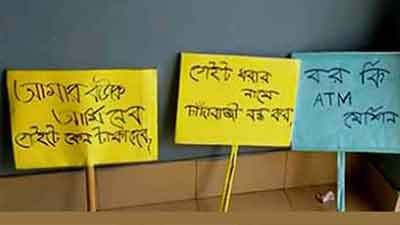 আমার বউকে
আমি নেব
গেইটে কেন টাকা দেব,
গেইট ধরার
নামে
চাঁদাবাজী বন্ধ কর,
বর কি
ATM
মেশিন